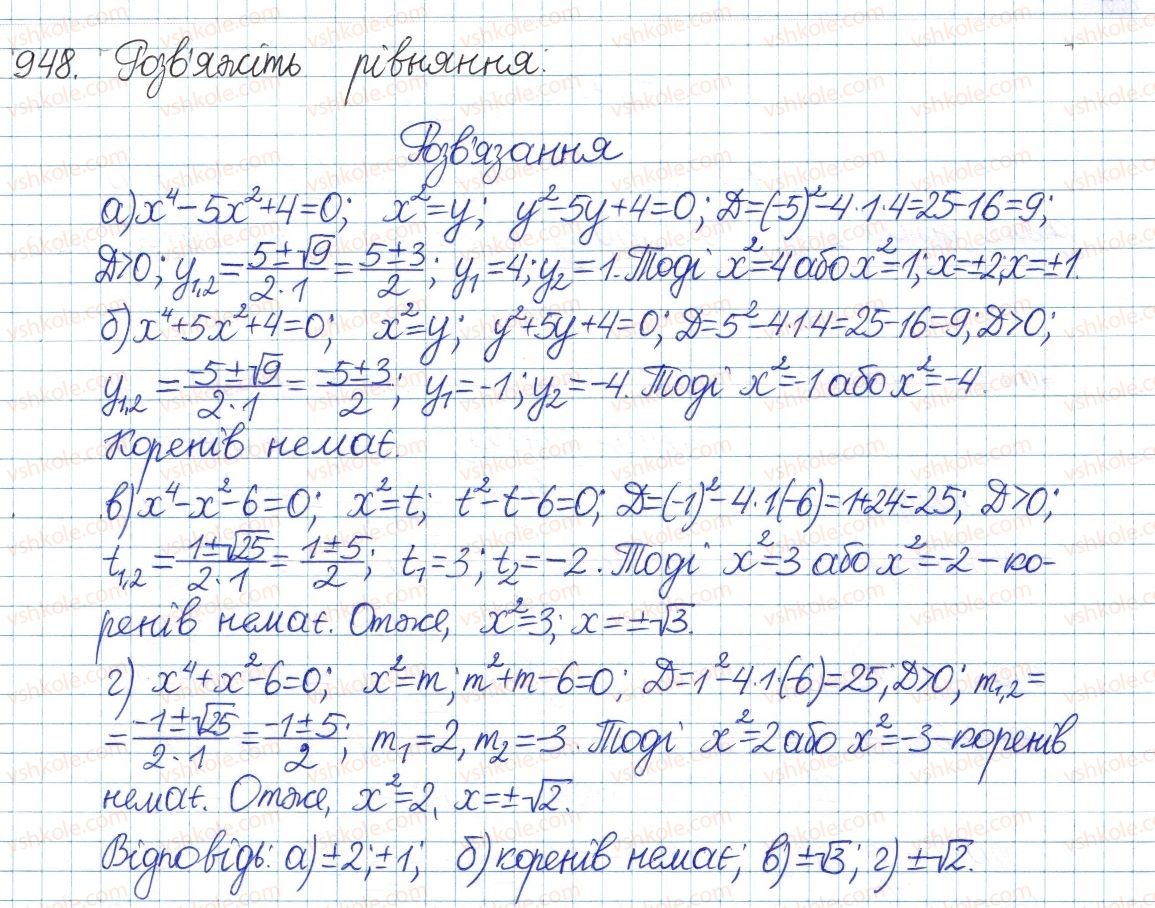 948. Розв'яжіть рівняння:
Розв'язання
а) x⁴-5x²+4=0; x²=y; y²-5y+4=0; Д=(-5)²-4·1·4=25-16=9;
Д>0; y₁,₂ = (5±√9)/(2·1) = (5±3)/2; y₁=4; y₂=1. Тоді x²=4 або x²=1; x=±2; x=±1.
б) x⁴+5x²+4=0; x²=y; y²+5y+4=0; Д=5²-4·1·4=25-16=9; Д>0;
y₁,₂ = (-5±√9)/(2·1) = (-5±3)/2; y₁=-1; y₂=-4. Тоді x²=-1 або x²=-4.
Коренів немає.
в) x⁴-x²-6=0; x²=t; t²-t-6=0; Д=(-1)²-4·1(-6)=1+24=25; Д>0;
t₁,₂ = (1±√25)/(2·1) = (1±5)/2; t₁=3; t₂=-2. Тоді x²=3 або x²=-2 – ко-
ренів немає. Отже, x²=3; x=±√3.
г) x⁴+x²-6=0; x²=m; m²+m-6=0; Д=1²-4·1·(-6)=25; Д>0; m₁,₂ =
= (-1±√25)/(2·1) = (-1±5)/2; m₁=2, m₂=-3. Тоді x²=2 або x²=-3 – коренів
немає. Отже, x²=2, x=±√2.
Відповідь: а) ±2; ±1; б) коренів немає; в) ±√3; г) ±√2.